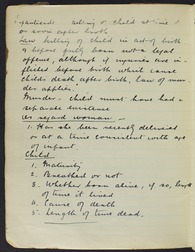 Infanticide - killing a child at time of
or soon after birth
Law: killing of child in act of birth
& before fully born not a legal
offence, although if injuries are in-
flicted before birth which cause
childs death after birth, law of mur-
der applies.
Murder - child must have had a
separate existence
As regard woman -
1. Has she been recently delivered
or at a time consistent with age
of infant.
Child
1. Maturity
2. Breathed or not
3. Whether born alive, if so, length
of time it lived
4. Cause of death
5. Length of time dead.